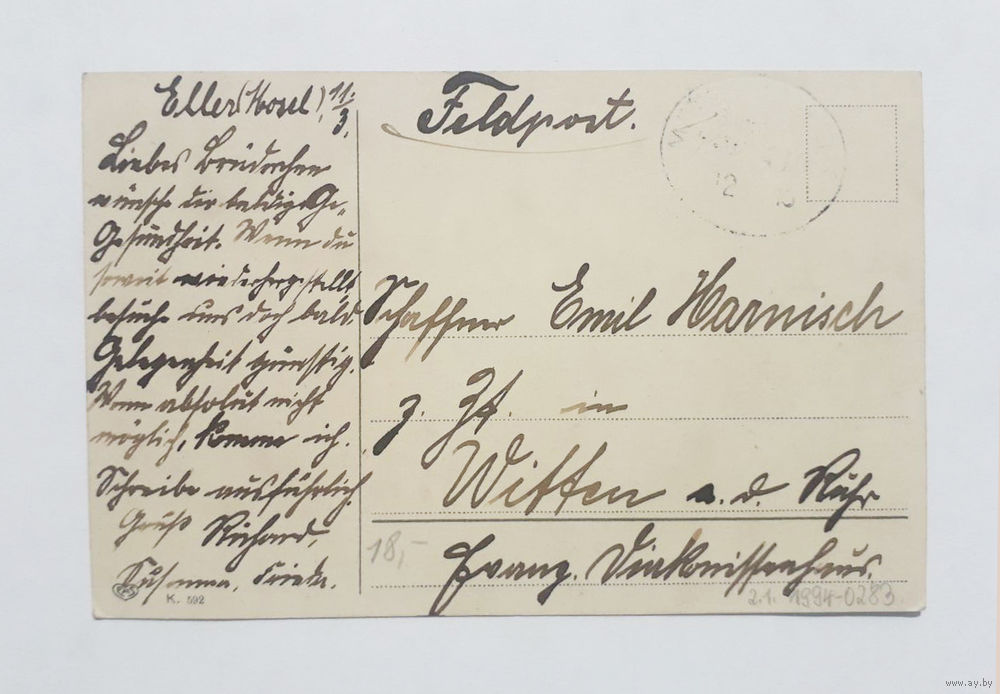 Eller (Mosel), 11./3.
Liebes Brüderchen
wünsche dir baldige Ge-
Gesundheit. Wenn du
soweit wiederhergestellt
besuche uns doch bald
Gelegenheit günstig.
Wenn absolut nicht
möglich, komme ich.
Schreibe ausführlich.
Gruß Richard,
Susanna, Frieda.
K. 592
Feldpost.
12
Schaffner Emil Harnisch
z. Zt. in
Witten a. d. Ruhr
Evang. Diakonissenhaus.
18,-
2.1. 1994-0283
www.ay.by